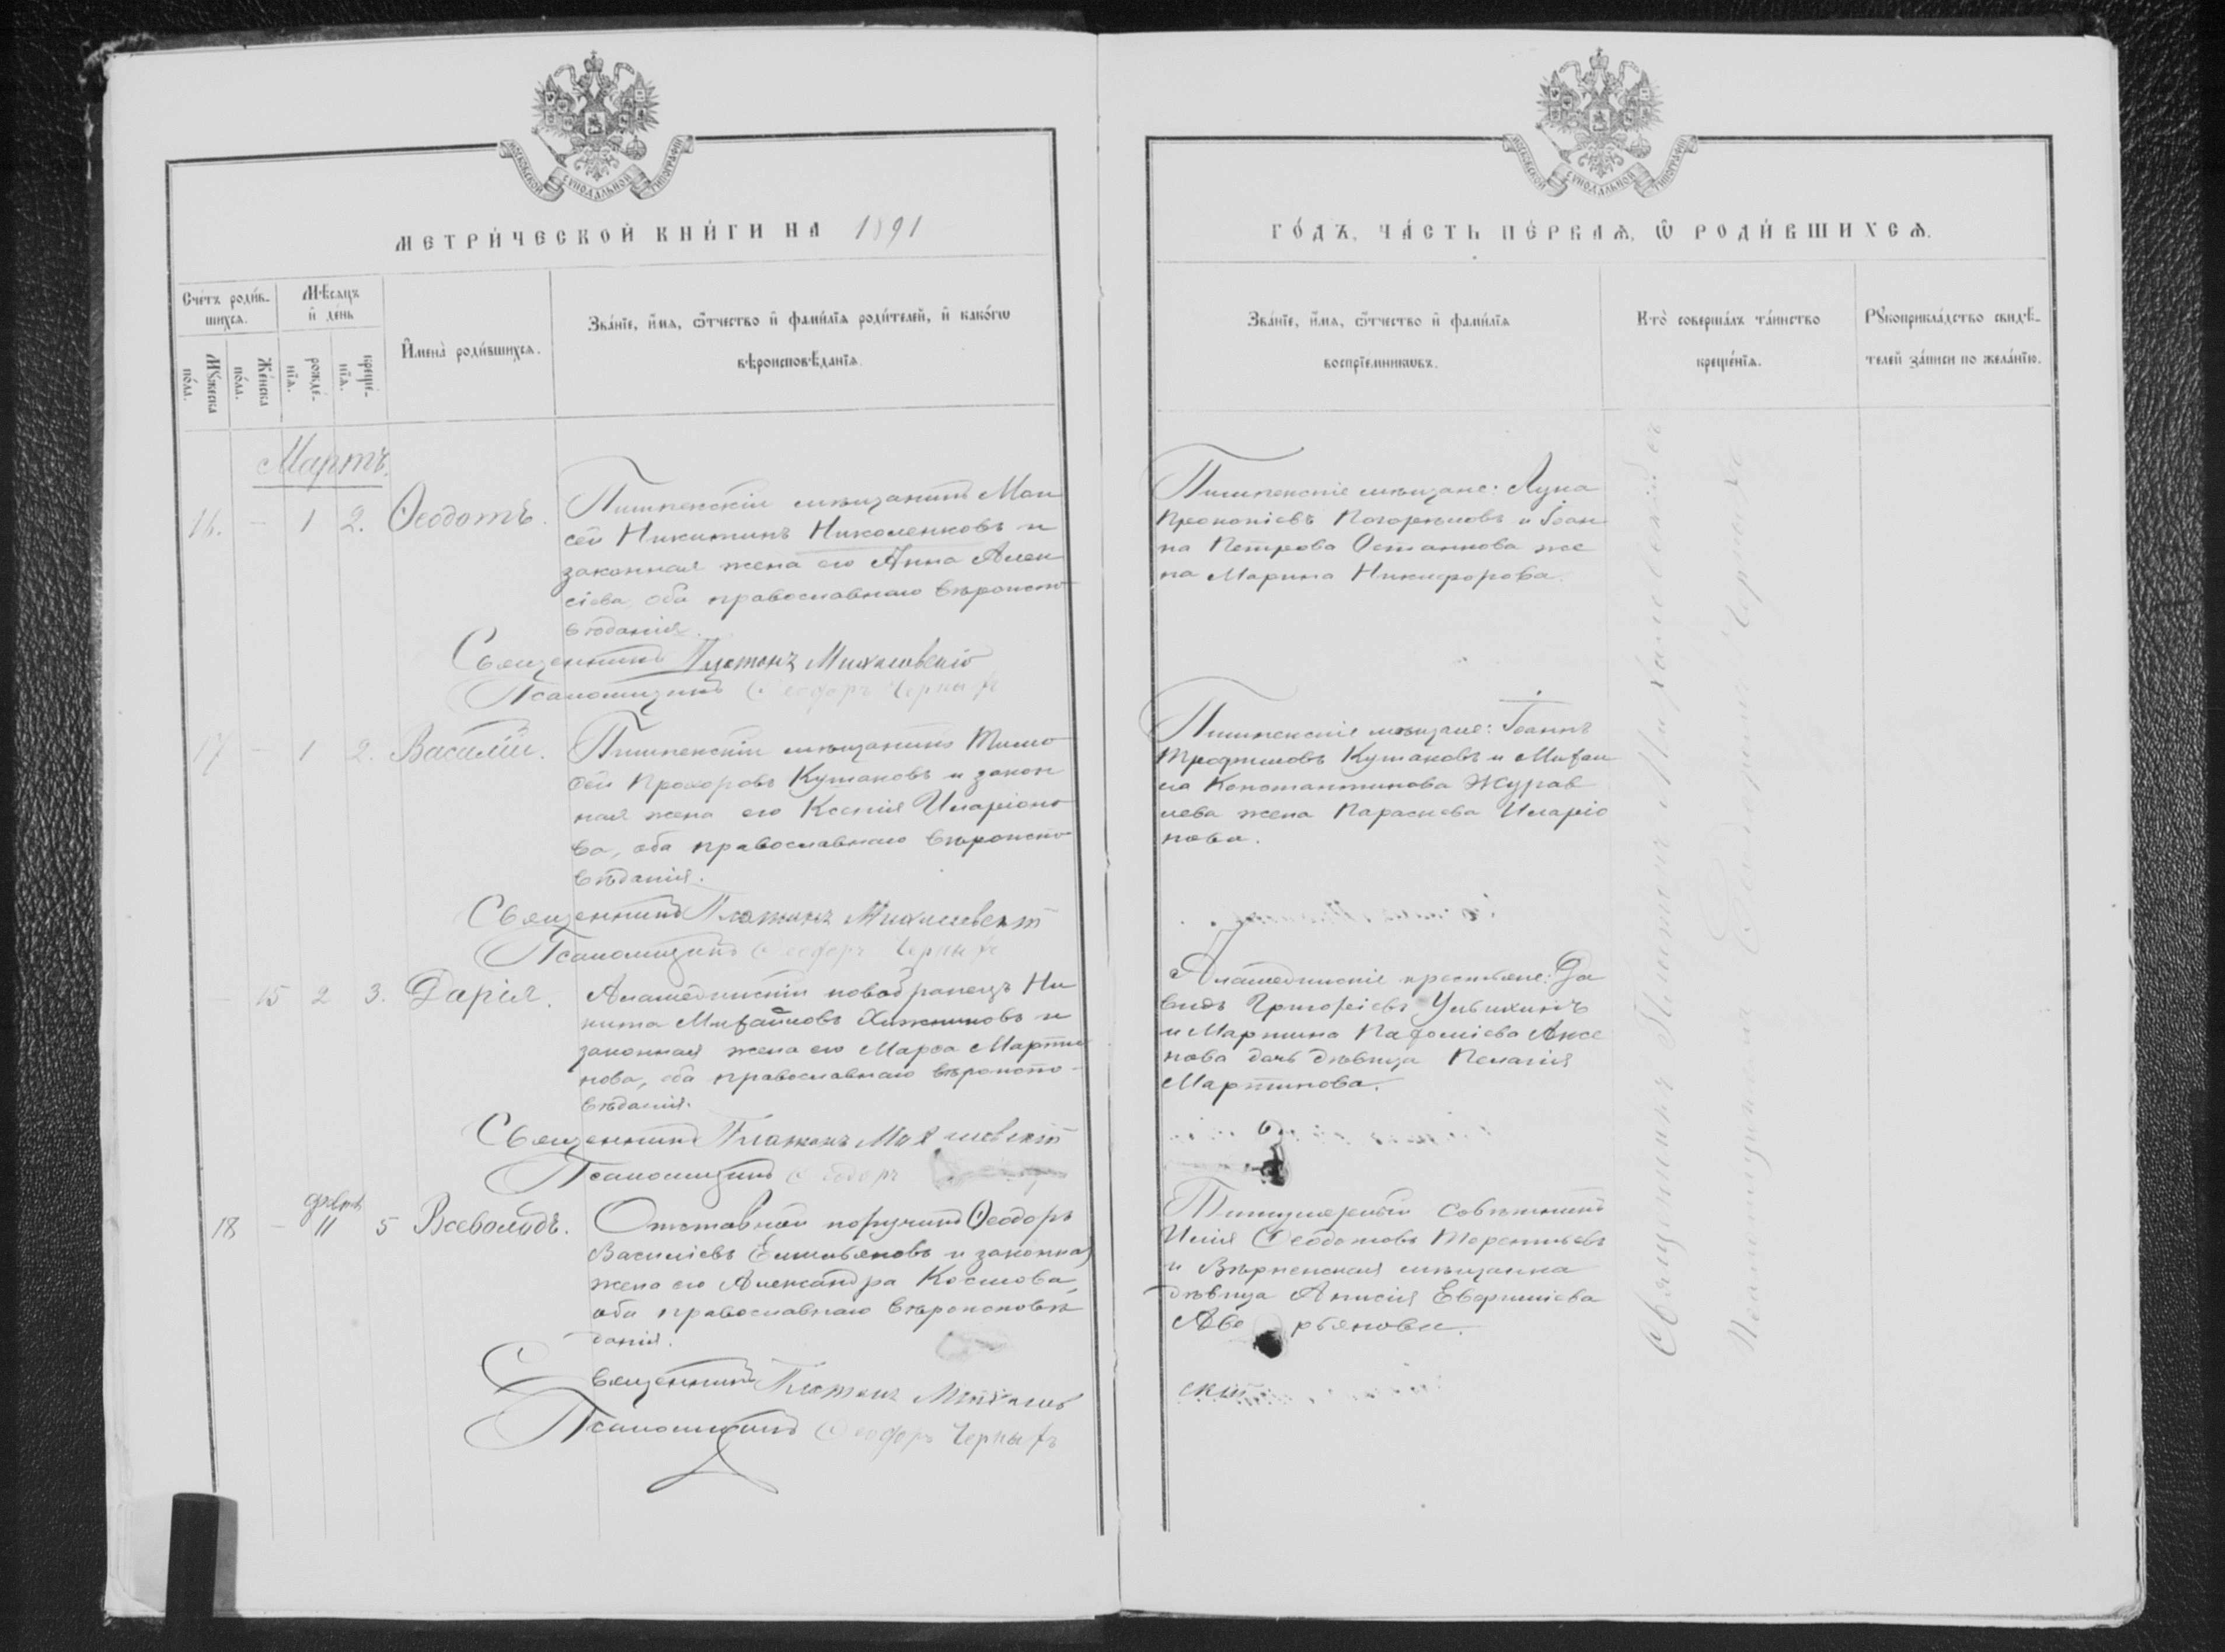 МОСКОВСКОЙ СѴНОДАЛЬНОЙ ТИПОГРАФІИ
МЕТРИ́ЧЕСКОЙ КНИ́ГИ НА 1891
Сче́тъ роди́в-
шихсѧ.
Мѣсѧцъ
и҆ де́нь
Мꙋ́жеска
по́ла.
Же́нска
по́ла.
рожде́-
нїѧ.
креще́-
нїѧ.
И҆мена̀ роди́вшихсѧ.
Зва́нїе, и҆́мѧ, ѻ҆́тчество и҆ фами́лїѧ роди́телей, и҆ како́гѡ
вѣроисповѣ́данїѧ.
Мартъ.
16. - 1 2. Ѳеодотъ.
Пишпекскій мѣщанинъ Мои
сей Никитинъ Николенковъ и
законная жена его Анна Алек
сіева, оба православнаго вѣроиспо
вѣданія.
Священникъ Платонъ Михаловскій
Псаломщикъ Ѳеодоръ Черныхъ
17 - 1 2. Василій.
Пишпекскій мѣщанинъ Тимо
фей Прохоровъ Кушаковъ и закон
ная жена его Ксенія Иларіоно
ва, оба православнаго вѣроиспо
вѣданія.
Священникъ Платонъ Михаловскій
Псаломщикъ Ѳеодоръ Черныхъ
- 15 2 3. Дарія.
Аламединскій новобранецъ Ни
кита Михайловъ и
законная жена его Марѳа Марти
нова, оба православнаго вѣроиспо-
вѣданія.
Священникъ Платонъ Михаловскій
Псаломщикъ Ѳеодоръ
18 - 11 5 Всеволодъ.
Отставной поручикъ Ѳеодоръ
Василіевъ Емельяновъ и законная
жена его Александра Космова,
оба православнаго вѣроисповѣ
данія.
Священникъ Платонъ Михалов
Псаломщикъ Ѳеодоръ Черныхъ
МОСКОВСКОЙ СѴНОДАЛЬНОЙ ТИПОГРАФІИ
ГО́ДЪ, ЧА́СТЬ ПЕ́РВАѦ, Ѡ҆ РОДИ́ВШИХСѦ.
Зва́нїе, и҆́мѧ, ѻ҆́тчество и҆ фами́лїѧ
воспрїе́мникѡвъ.
Кто̀ соверша́лъ та́инство
креще́нїѧ.
Рꙋкоприкла́дство свидѣ́-
телей за́писи по жела́нїю.
Пишпекскіе мѣщане: Лука
Прокопіевъ Погорѣловъ и Іоан
на Петрова Остапкова же
на Марина Никифорова.
Пишпекскіе мѣщане: Іоаннъ
Трофимовъ Кушаковъ и Михаи
ла Константинова Журав
лева жена Параскева Иларіо
нова.
Аламединскіе крестьяне: Да
видъ Григоріевъ
и Мартина Пафоміева Аксе
нова дочь дѣвица Пелагія
Мартинова.
Титулярный Совѣтникъ
Илія Ѳеодотовъ Терентьевъ
и Вѣрненская мѣщанка
дѣвица Анисія Евфиміева
Аверьянова.
скій
Священникъ Платонъ Михаловскій съ
Псаломщикомъ Ѳеодоромъ Черныхъ